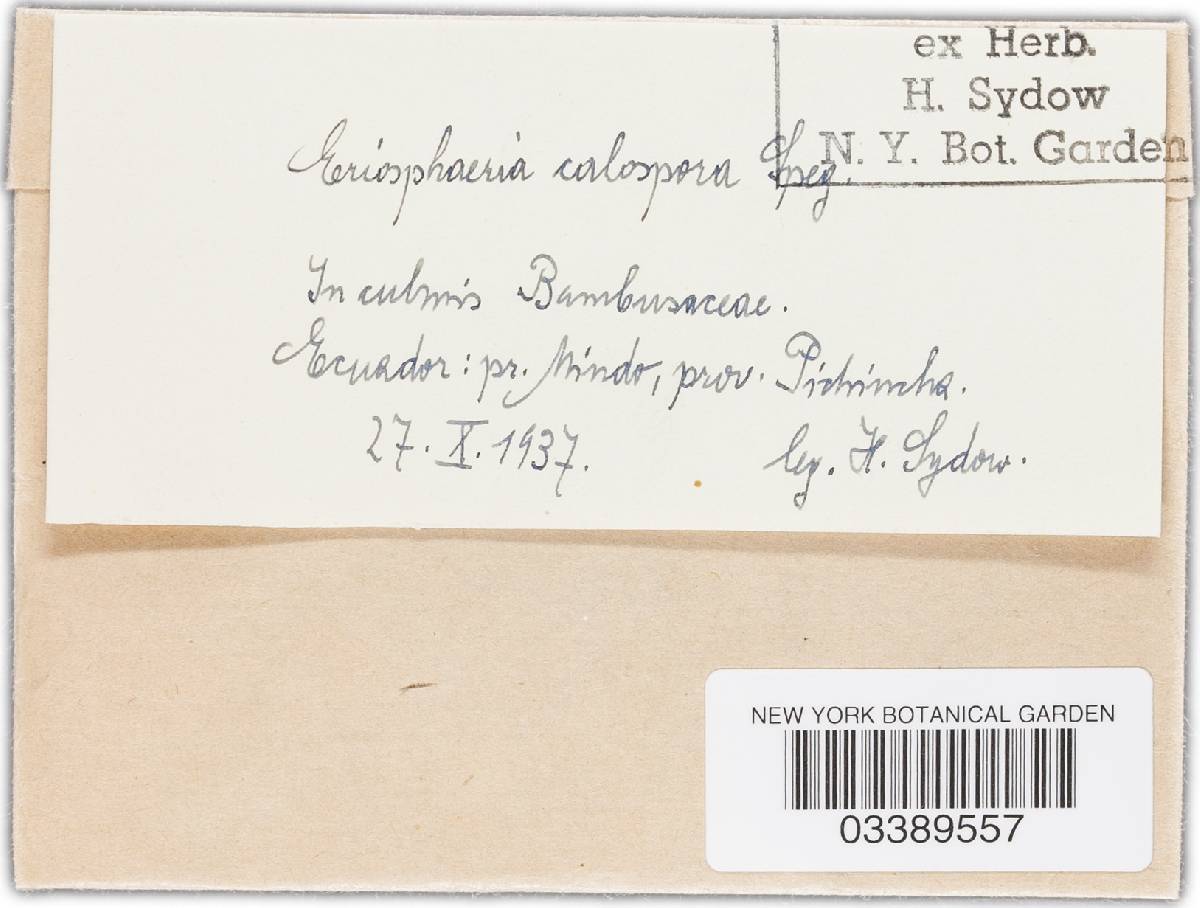 ex Herb.
H. Sydow
N. Y. Bot. Garden
Eriosphaeria calospora Speg.
In culmis Bambusaceae.
Ecuador: pr. Mindo, prov. Pichincha.
27. X. 1937. leg. H. Sydow.
NEW YORK BOTANICAL GARDEN
03389557